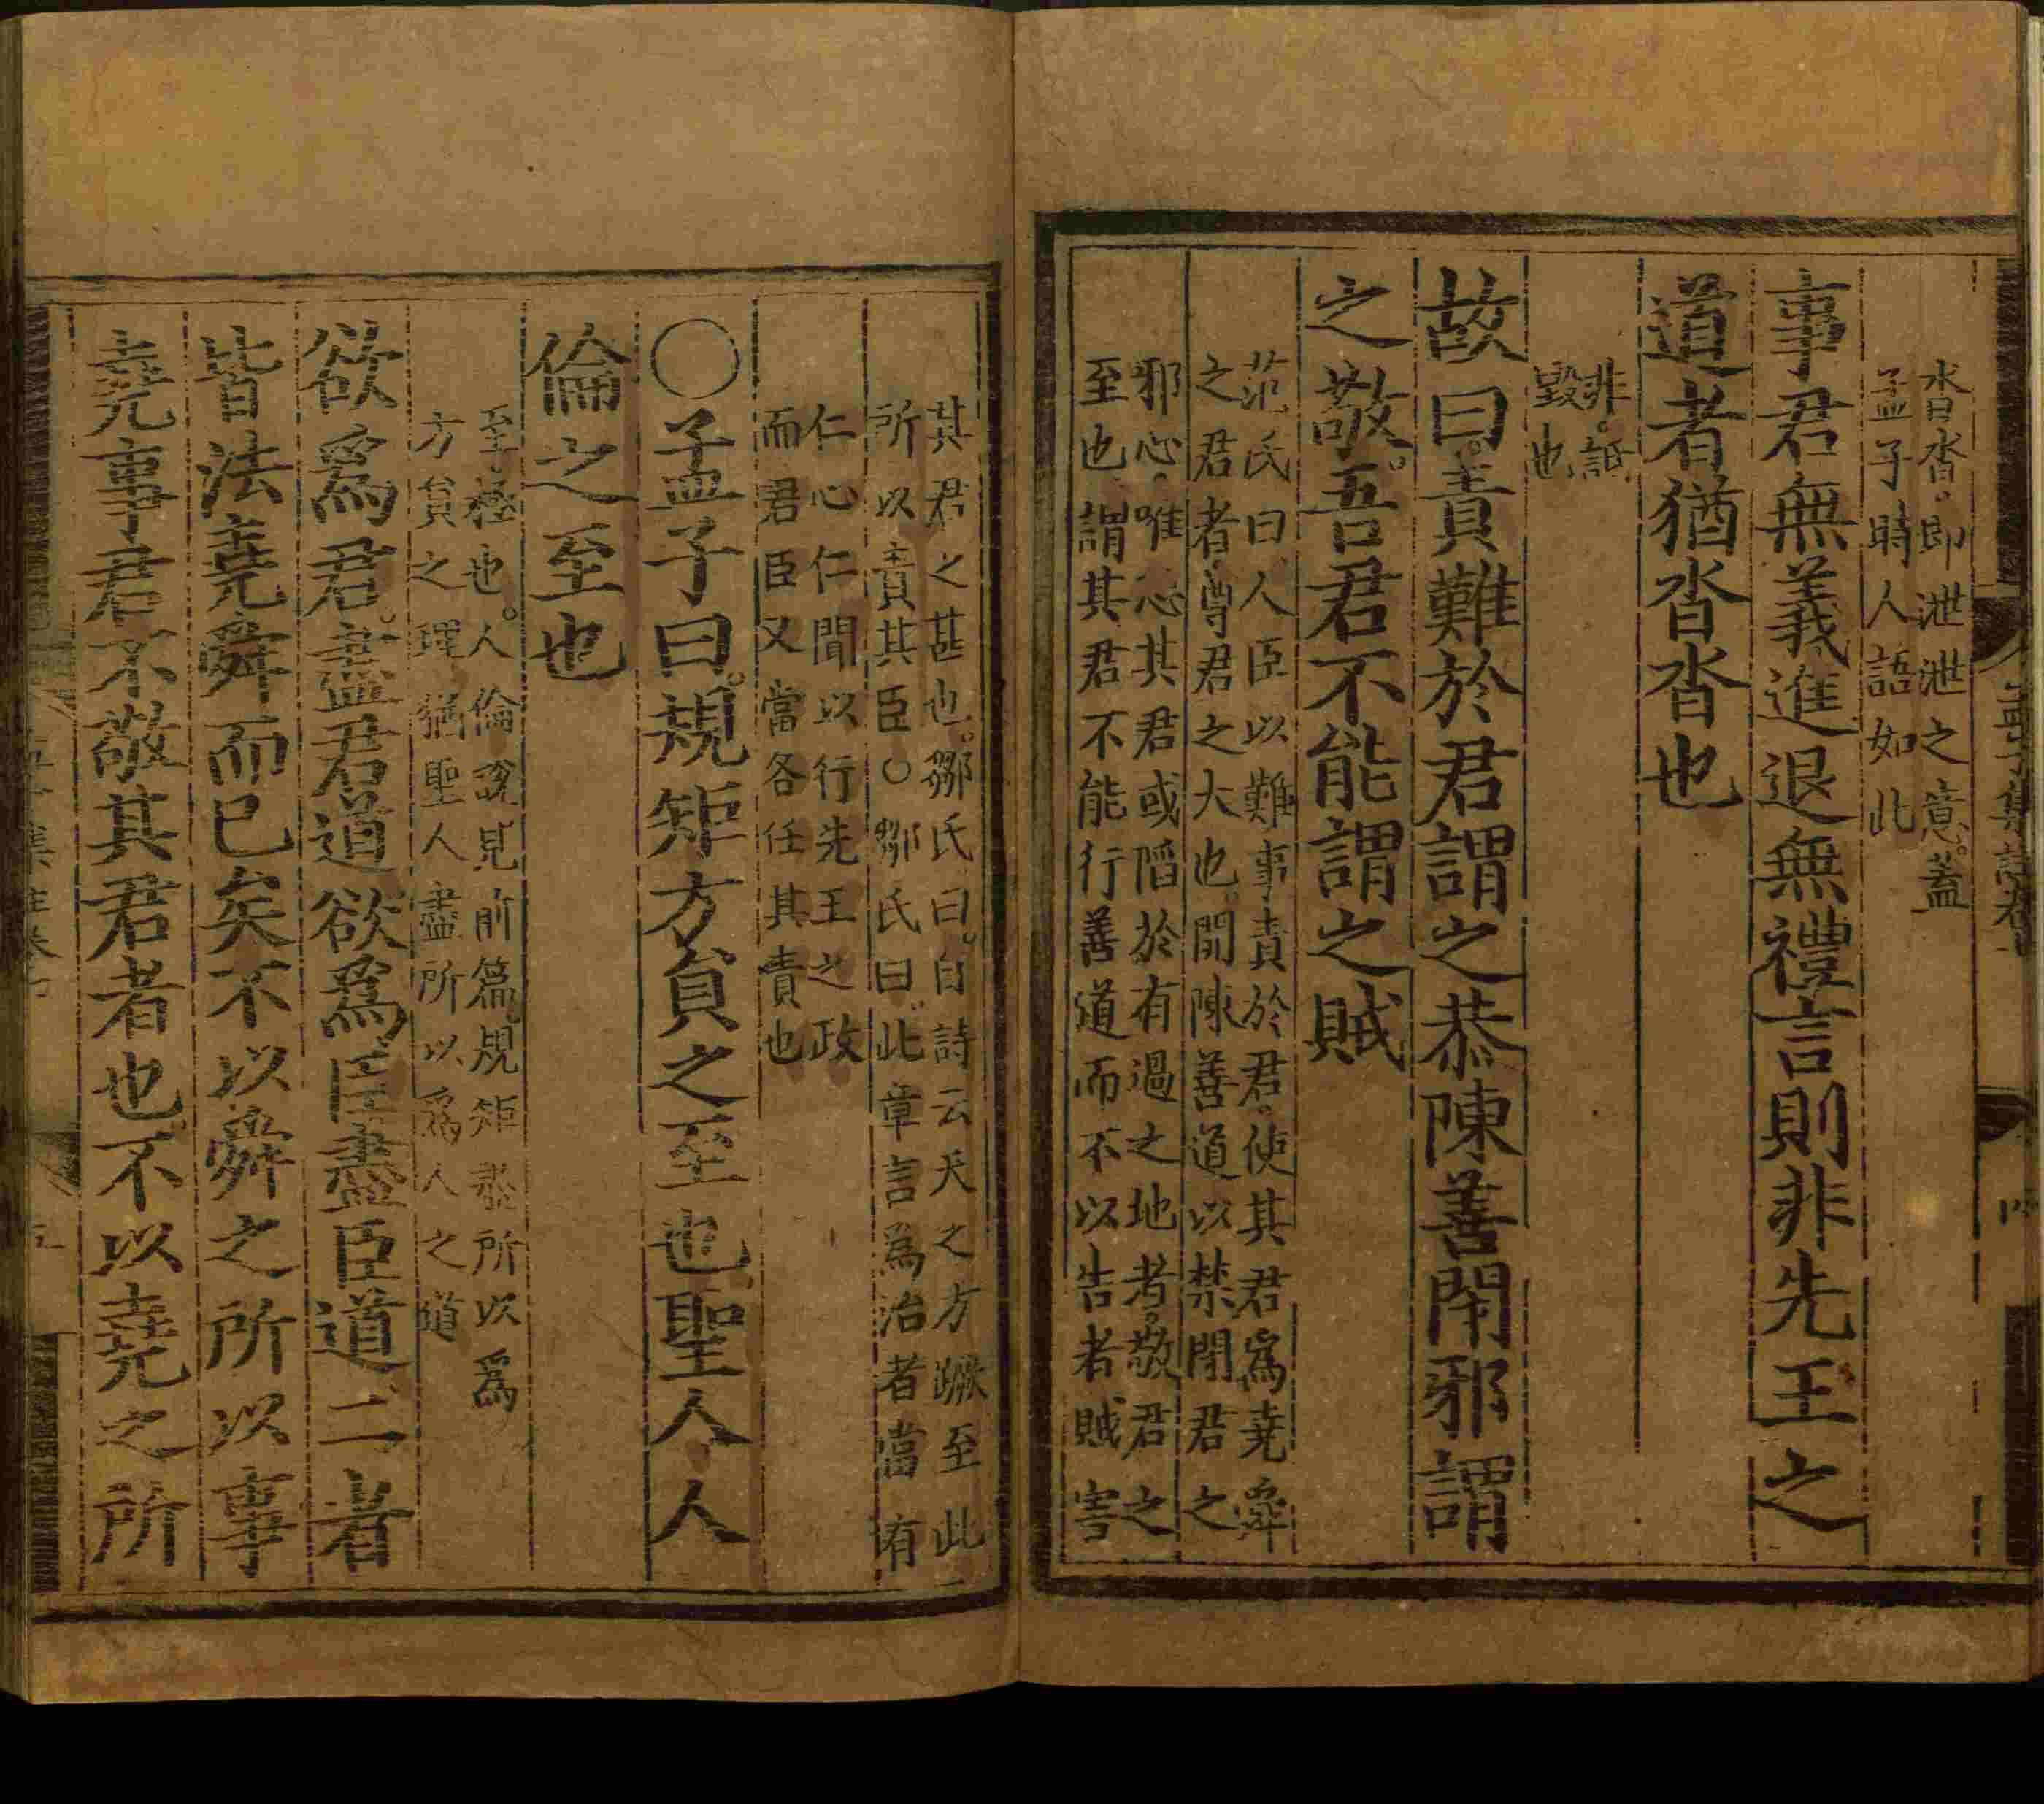 沓沓即泄泄之意蓋
孟子時人語如此
事君無義進退無禮言則非先王之
道者猶沓沓也
非詆
毀也
故曰責難於君謂之恭陳善閉邪謂
之敬吾君不能謂之賊
范氏曰人臣以難事責於君使其君爲堯舜
之君者尊君之大也開陳善道以禁閉君之
邪心唯恐其君或陷於有過之地者敬君之
至也謂其君不能行善道而不以告者賊害
其君之甚也鄒氏曰自詩云天之方蹶至此
所以責其臣○鄒氏曰此章言爲治者當有
仁心仁聞以行先王之政
而君臣又當各任其責也
○孟子曰規矩方員之至也聖人人
倫之至也
至極也人倫說見前篇規矩盡所以爲
方員之理猶聖人盡所以爲人之道
欲爲君盡君道欲爲臣盡臣道二者
皆法堯舜而已矣不以舜之所以事
堯事君不敬其君者也不以堯之所